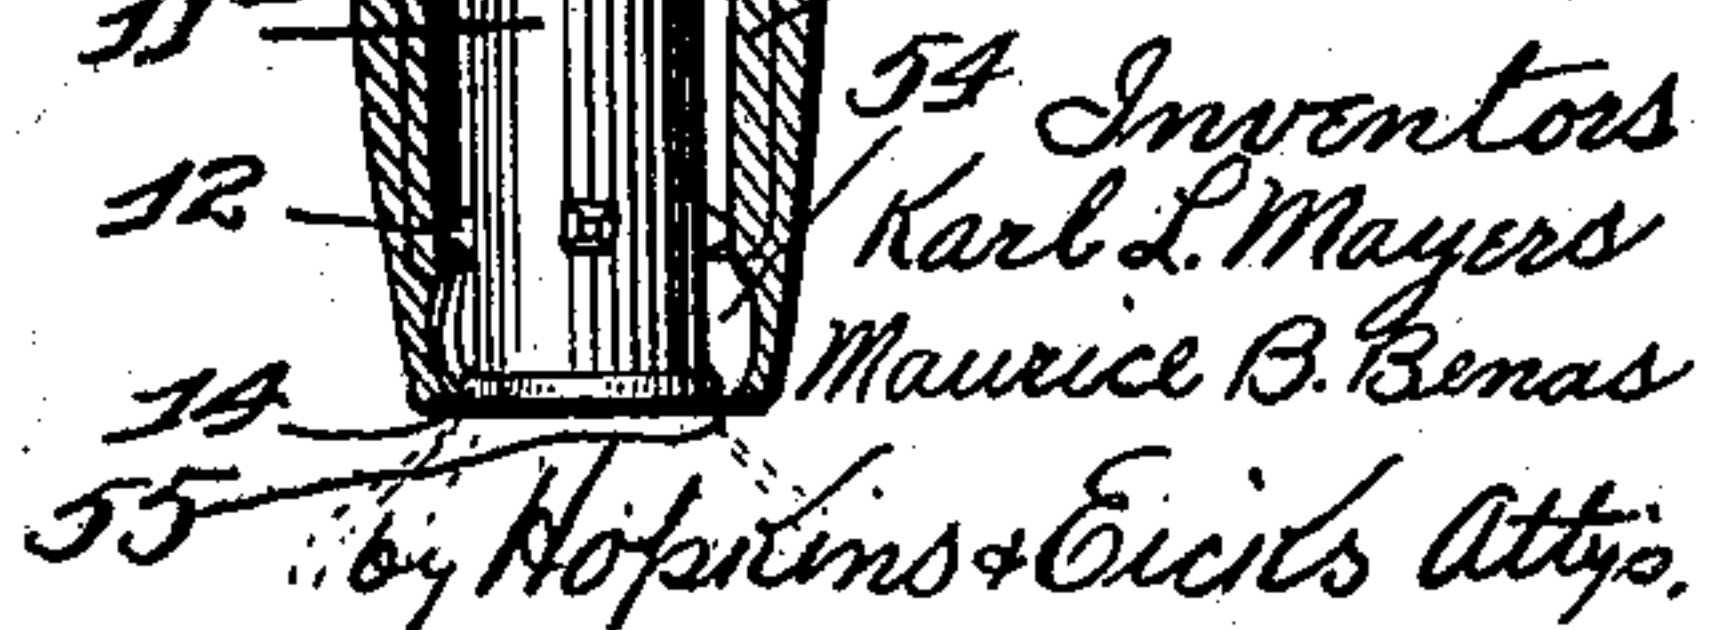 11
54
Inventors
12
Karl L. Mayers
Maurice B. Benas
14
55
by Hopkins & Eicks Attys.